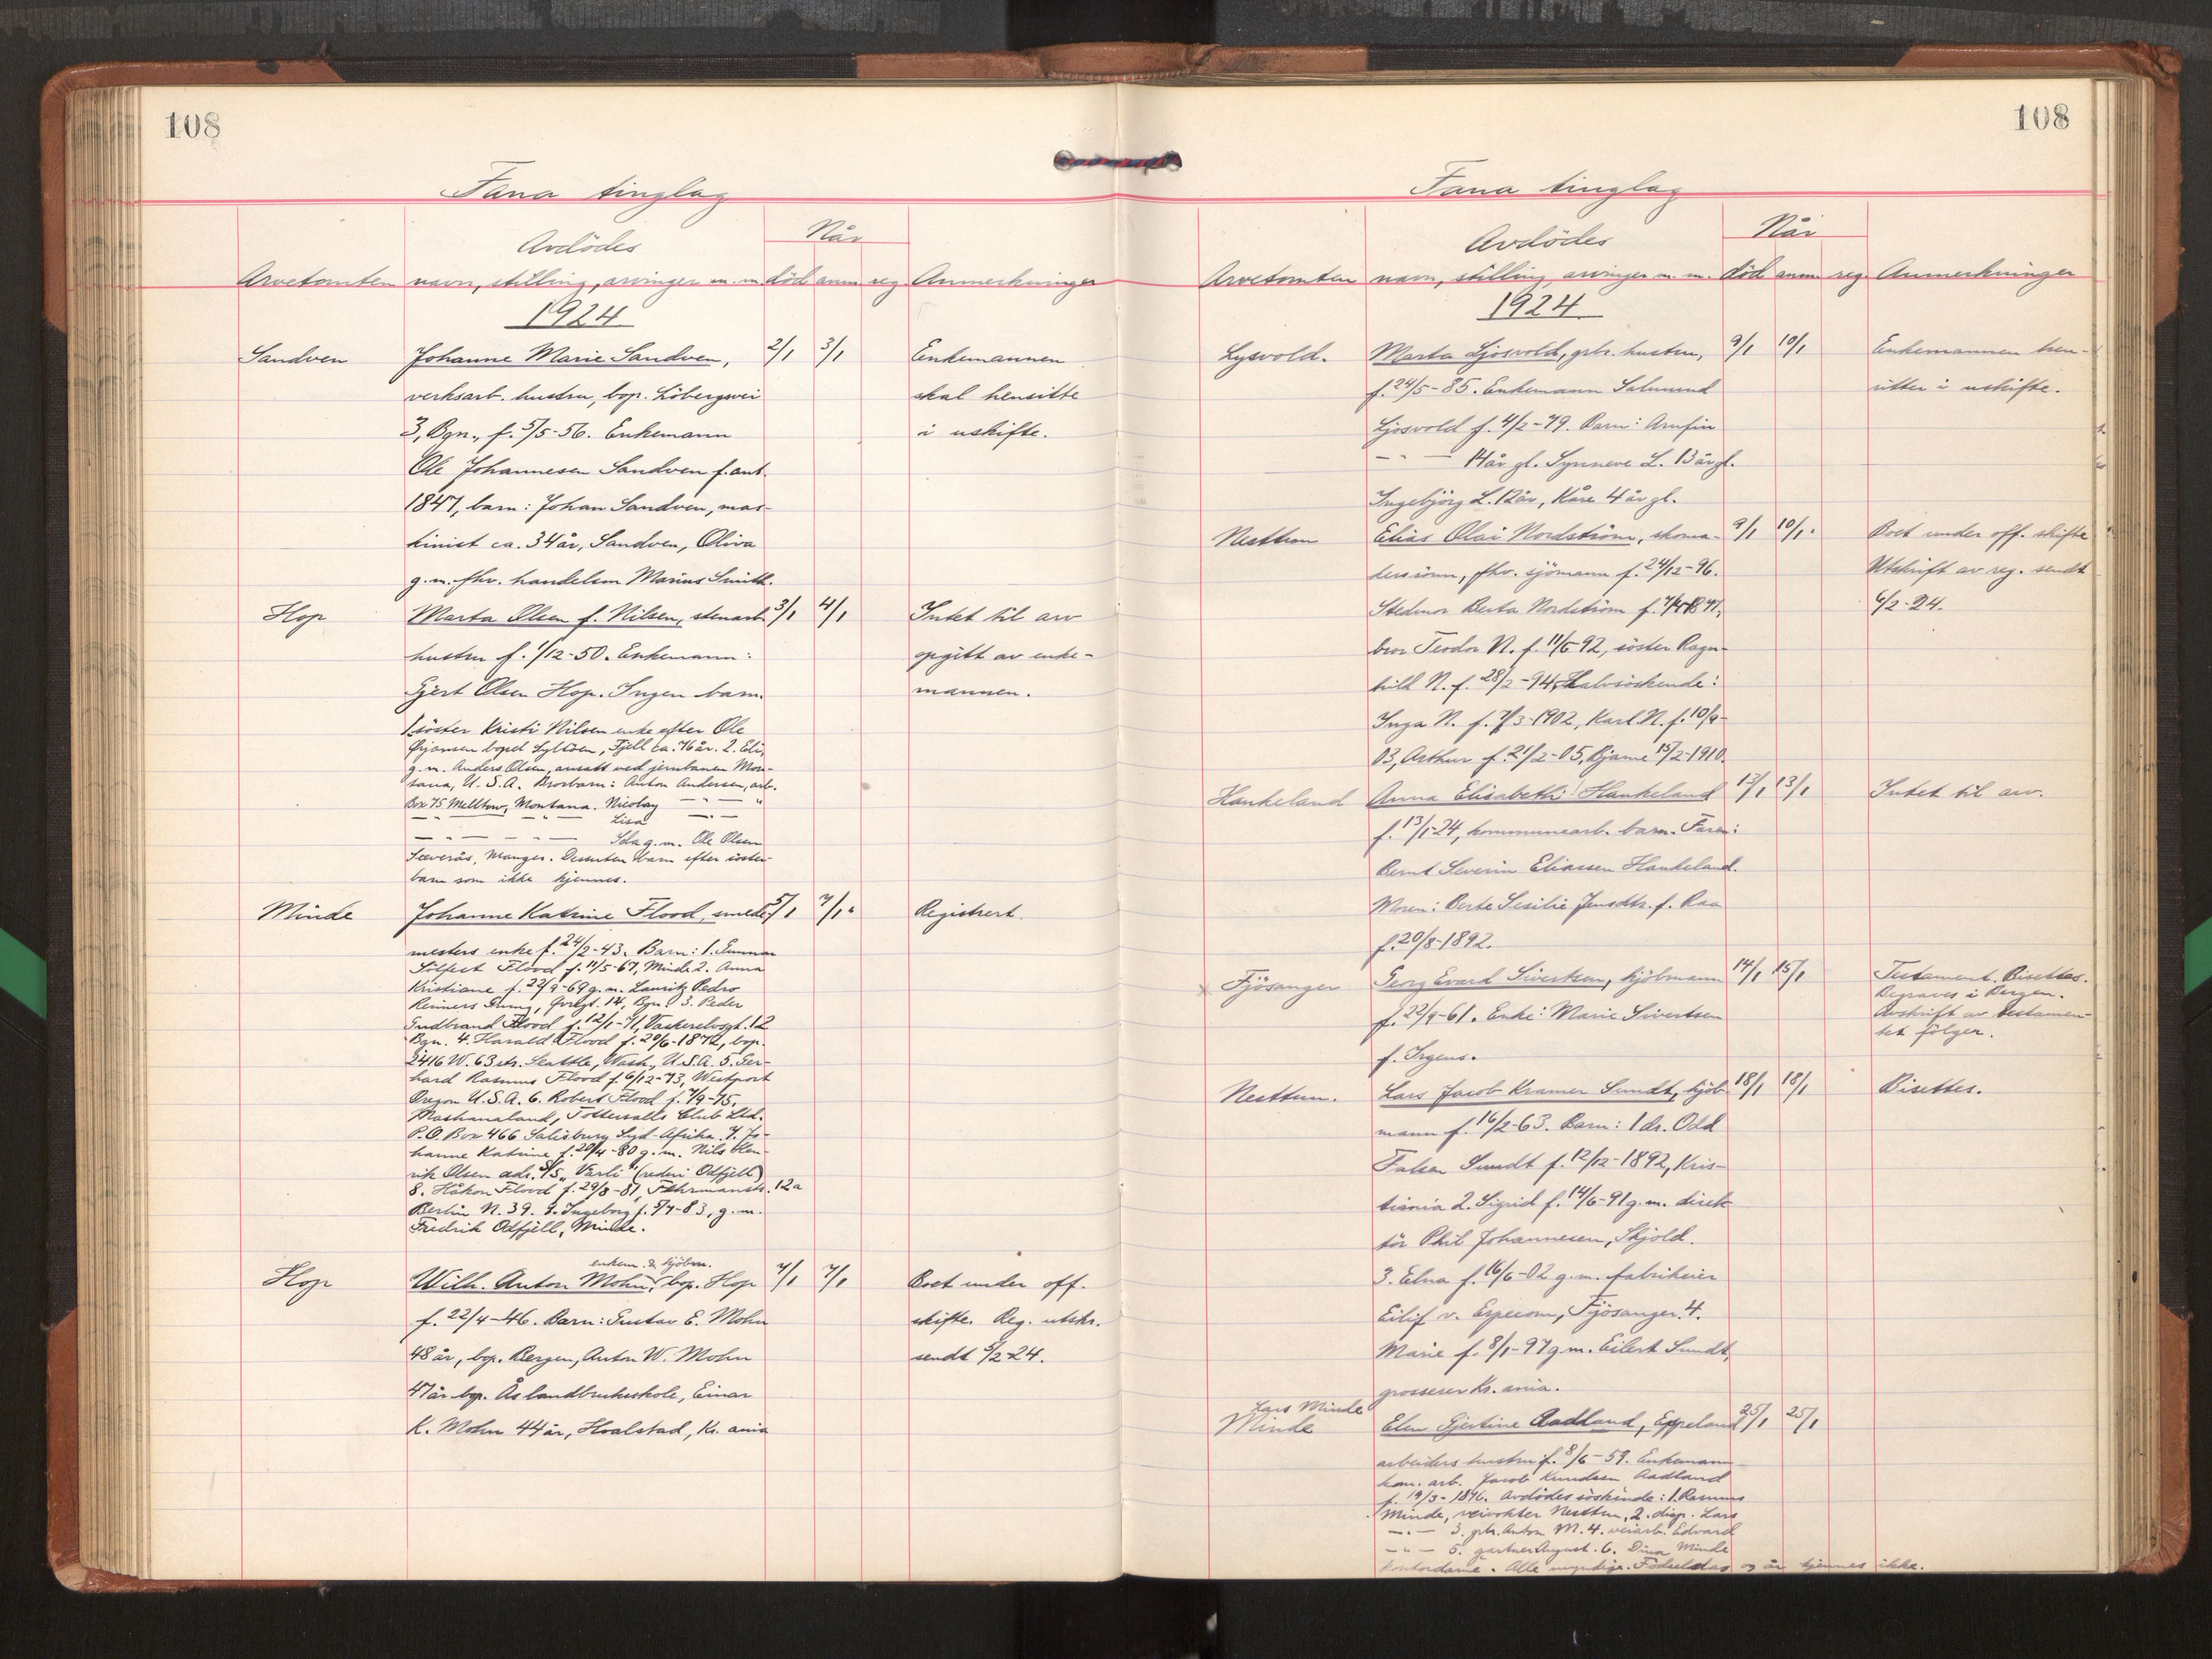 108
Fana tinglag
Avdödes
Når
Arvetomten navn, stilling, arvinger m. m. död anm reg. Anmerkninger
1924
Sandven Johanne Marie Sandven, 2/1 3/1 Enkemannen
verksarb. hustru, bop. Löbergsvei skal hensitte
3, Bgn., f. 5/5-56. Enkemann i uskifte.
Ole Johannesen Sandven f. ant.
1847, barn: Johan Sandven, mas-
kinist ca. 34 år, Sandven, Oliva
g.m. fhv. handelsm Marius Smith.
Hop Marta Olsen f. Nilsen, stenarb. 3/1 4/1 Intet til arv
hustru f. 1/12-50. Enkemann: opgitt av enke-
Gjert Olsen Hop. Ingen barn. mannen.
1 söster Kristi Nilsen enke efter Ole
Örjansen bopel Syltöen, Fjell ca. 76 år. 2. Eli,
g.m. Anders Olsen, ansatt ved jernbanen Mon-
tana, U.S.A. Brorbarn: Anton Andersen, arb.
Box 75 Melltow, Montana. Nicolay — " — "
— " — — " — Lisa — " —
— " — — " — Ida g.m. Ole Olsen
Sæverås, Manger. Desuten barn efter söster-
barn som ikke kjennes.
Minde Johanne Katrine Flood, smede- 5/1 7/1. Registrert.
mesters enke f. 24/2-43. Barn: 1. Gunnar
Sölfest Flood f. 11/5-67, Minde 2. Anna
Kristiane f. 22/9-69 g.m. Lauritz Pedro
Reimers 14, Bgn. 3. Peder
Gudbrand Flood f. 12/1-71, Vaskerelvsgt. 12
Bgn. 4. Harald Flood f. 20/6-1872, bop.
2416 W. 63 str. Seattle, Wash., U.S.A. 5. Ger-
hard Rasmus Flood f. 6/12-73, Westport
Oregon U.S.A. 6. Robert Flood f. 7/9-75,
Mashanaland, Tottersalls Club Ltd.
P.O. Box 466 Salisbury Syd-Afrika. 7. Jo-
hanne Katrine f. 20/4-80 g.m. Nils Hen-
rik Olsen adr. S/S „Varli" (rederi Odfjell)
8. Håkon Flood f. 29/8-81, Fehrmanstr. 12a
Berlin N. 39. 9. Ingeborg f. 5/7-83, g.m.
Fredrik Odfjell, Minde.
enkem. & kjöbm.
Hop Wilh. Anton Mohn, bop. Hop 7/1 7/1 Boet under off.
f. 22/4-46. Barn: Gustav E. Mohn skifte. Reg. utskr.
48 år, bop. Bergen, Anton W. Mohn sendt 5/2-24.
47 år bop. Ås landbrukskole, Einar
K. Mohn 44 år, Hvalstad, Kr. ania
108
Fana tinglag
Avdödes
Når
Arvetomten navn, stilling, arvinger m. m. död anm reg. Anmerkninger
1924
Lysvold. Marta Ljosvold, grbr. hustru, 9/1 10/1 Enkemannen hen-
f. 24/5-85. Enkemann Salmund sitter i uskifte.
Ljosvold f. 4/2-79. Barn: Arnfin
— " — 14 år gl. Synneve L. 13 år gl.
Ingebjörg L. 12 år, Kåre 4 år gl.
Nesttun Elias Olai Nordström, skoma- 9/1 10/1. Boet under off. skifte
kersönn, fhv. sjömann f. 24/12-96. Utskrift av reg. sendt
Stedmor Berta Nordström f. 1871, 6/2-24.
bror Teodor N. f. 11/6-92, söster Ragn-
hild N. f. 28/2-94, Halvsöskende:
Inga N. f. 7/3-1902, Karl N. f. 10/9-
03, Arthur f. 21/2-05, Bjarne 15/2-1910.
Haukeland Anna Elisabeth Haukeland 13/1 13/1 Intet til arv.
f. 13/1-24, kommunearb. barn. Faren:
Bernt Severin Eliassen Haukeland.
Moren: Berte Sesilie Jensdtr. f. Raa
f. 20/8-1892.
Fjösanger Georg Evard Sivertsen, kjöbmann 14/1 15/1 Testament. Bisettes.
f. 22/9-61. Enke: Marie Sivertsen Begraves i Bergen.
Avskrift av testamen-
f. Irgens. tet fölger.
Nesttun. Lars Jacob Kramer Sundt, kjöb- 18/1 18/1 Bisettes.
mann f. 16/2-63. Barn: 1 dr. Odd
Falsen Sundt f. 12/12-1892, Kris-
tiania 2. Sigrid f. 14/6-91 g.m. direk-
tör Phil Johannesen, Skjold.
3. Elna f. 16/6-02 g.m. fabrikeier
Eilif v. Erpecom, Fjösanger 4.
Marie f. 8/1-97 g.m. Eilert Sundt,
grosserer Kr. ania.
Lars Minde
Minde Elen Gjertine Aadland, Eppeland 25/1 25/1
arbeiders hustru f. 8/6-59. Enkemann
kom. arb. Jacob Knudsen Aadland
f. 19/3-1846. Avdödes söskende: 1. Rasmus
Minde, veivokter Nesttun, 2. disp. Lars
— " — 3. grbr. Anton M. 4. veiarb. Edvard
— " — 5. gartner August. 6. Dina Minde
kontordame. Alle myndige. Födselsdag og år kjennes ikke.